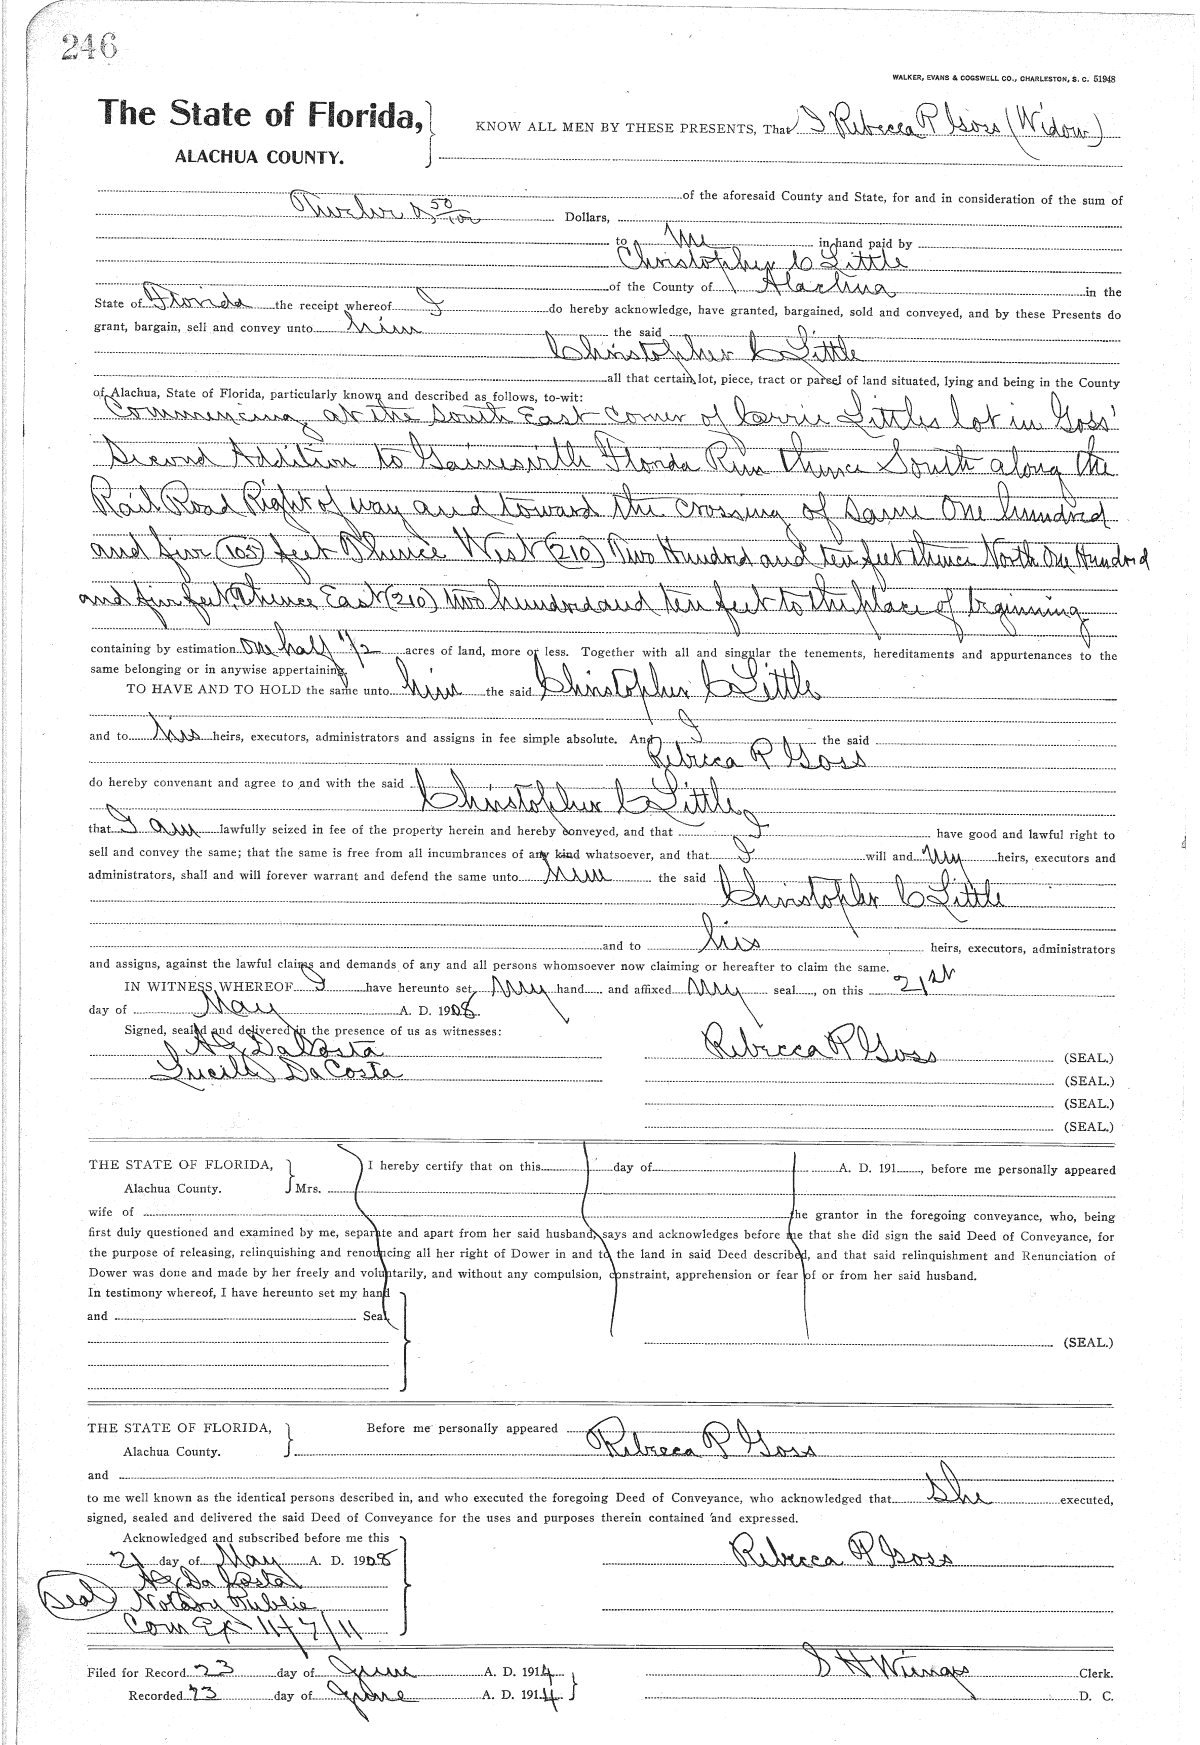 246
WALKER, EVANS & COGSWELL CO., CHARLESTON, S. C. 51948
The State of Florida,
ALACHUA COUNTY.
KNOW ALL MEN BY THESE PRESENTS, That I Rebecca P Goss (Widow)
of the aforesaid County and State, for and in consideration of the sum of
Twelve & 50/100 Dollars,
to me in hand paid by
Christopher C Little
of the County of Alachua in the
State of Florida the receipt whereof I do hereby acknowledge, have granted, bargained, sold and conveyed, and by these Presents do
grant, bargain, sell and convey unto him the said
Christopher C Little
all that certain lot, piece, tract or parcel of land situated, lying and being in the County
of Alachua, State of Florida, particularly known and described as follows, to-wit:
Commencing at the South East corner of Carrie Littles lot in Goss'
Second Addition to Gainesville Florida Run thence South along the
Rail Road Right of way and toward the crossing of same One hundred
and five (105) feet Thence West (210) Two Hundred and ten feet thence North One Hundred
and five feet, Thence East (210) two hundred and ten feet to the place of beginning
containing by estimation one half 1/2 acres of land, more or less. Together with all and singular the tenements, hereditaments and appurtenances to the
same belonging or in anywise appertaining.
TO HAVE AND TO HOLD the same unto him the said Christopher C Little
and to his heirs, executors, administrators and assigns in fee simple absolute. And I the said
Rebecca P Goss
do hereby convenant and agree to and with the said Christopher C Little
that I am lawfully seized in fee of the property herein and hereby conveyed, and that I have good and lawful right to
sell and convey the same; that the same is free from all incumbrances of any kind whatsoever, and that I will and my heirs, executors and
administrators, shall and will forever warrant and defend the same unto him the said
Christopher C Little
and to his heirs, executors, administrators
and assigns, against the lawful claims and demands of any and all persons whomsoever now claiming or hereafter to claim the same.
IN WITNESS WHEREOF I have hereunto set my hand and affixed my seal, on this 21st
day of May A. D. 1908.
Signed, sealed and delivered in the presence of us as witnesses:
DaCosta
Lucille DaCosta
Rebecca P Goss (SEAL.)
(SEAL.)
(SEAL.)
(SEAL.)
THE STATE OF FLORIDA,
Alachua County.
I hereby certify that on this day of A. D. 191 , before me personally appeared
Mrs.
wife of the grantor in the foregoing conveyance, who, being
first duly questioned and examined by me, separate and apart from her said husband, says and acknowledges before me that she did sign the said Deed of Conveyance, for
the purpose of releasing, relinquishing and renouncing all her right of Dower in and to the land in said Deed described, and that said relinquishment and Renunciation of
Dower was done and made by her freely and voluntarily, and without any compulsion, constraint, apprehension or fear of or from her said husband.
In testimony whereof, I have hereunto set my hand
and Seal.
(SEAL.)
THE STATE OF FLORIDA,
Alachua County.
Before me personally appeared Rebecca P Goss
and
to me well known as the identical persons described in, and who executed the foregoing Deed of Conveyance, who acknowledged that she executed,
signed, sealed and delivered the said Deed of Conveyance for the uses and purposes therein contained and expressed.
Acknowledged and subscribed before me this
21 day of May A. D. 1908
Rebecca P Goss
Da Costa
Seal
Notary Public
Com Ex 11/7/11
Filed for Record 23 day of June A. D. 1914
S H Wienges Clerk.
Recorded 23 day of June A. D. 1914
D. C.